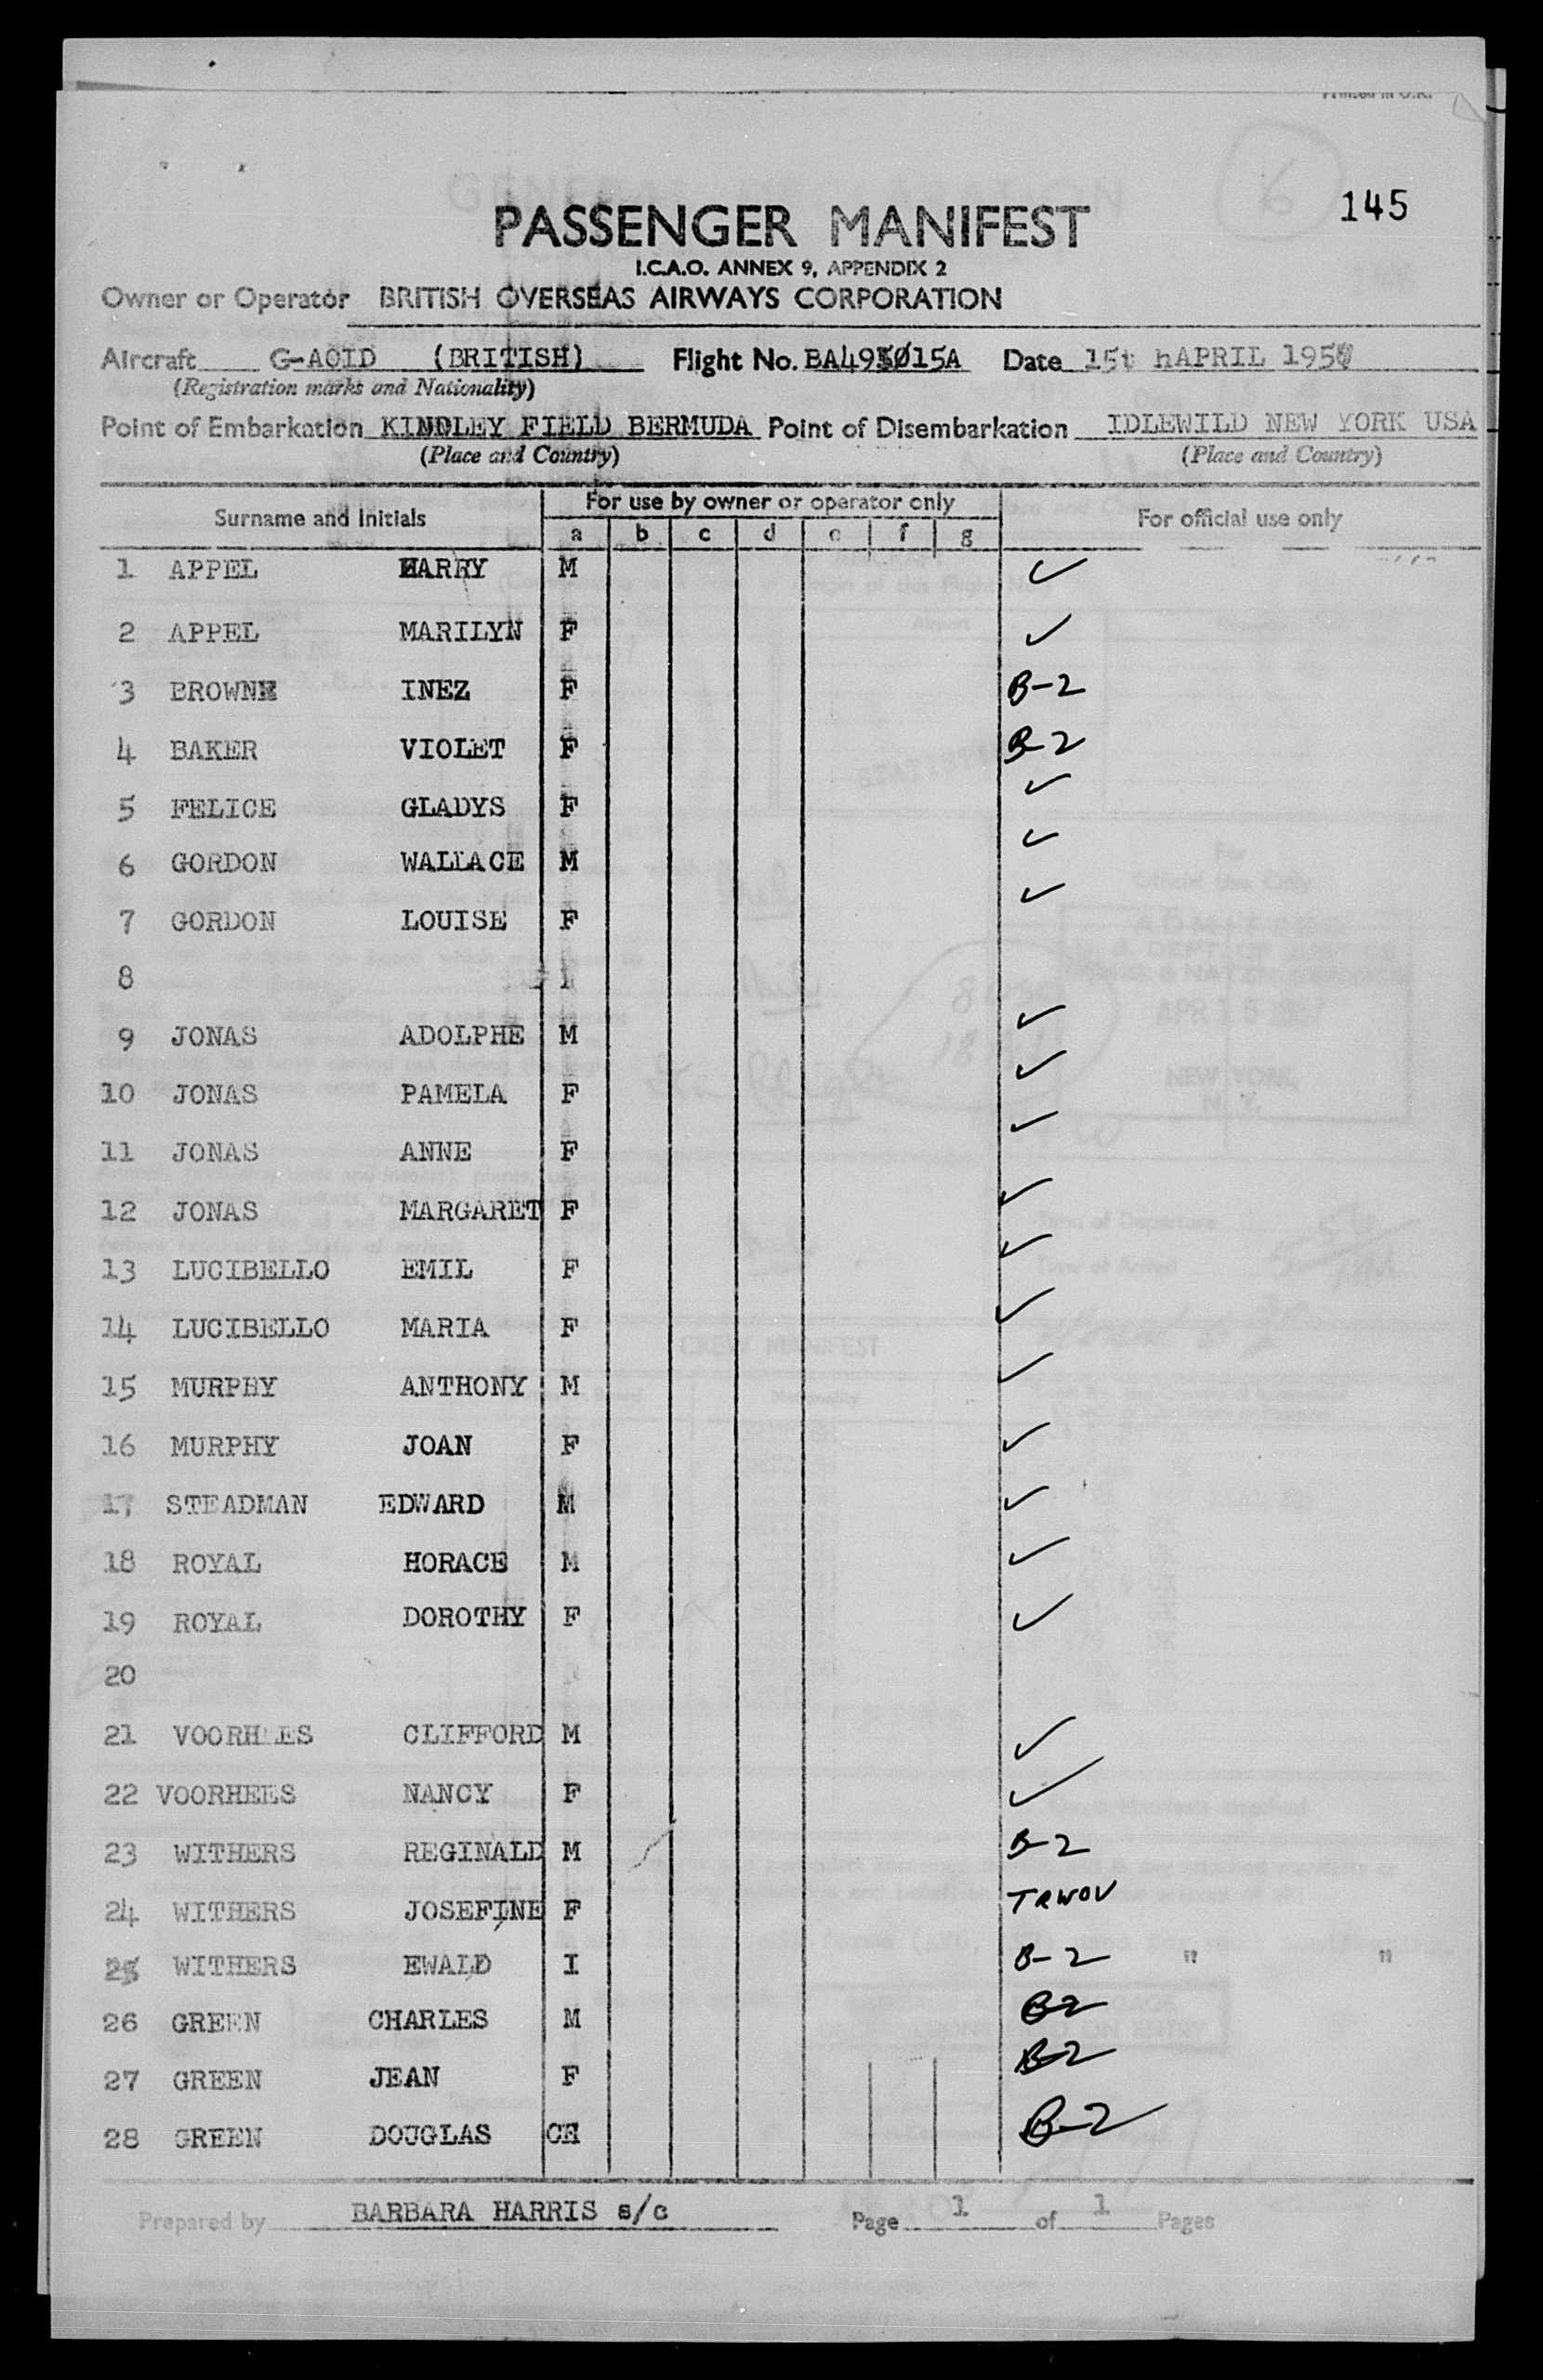 145
PASSENGER MANIFEST
I.C.A.O. ANNEX 9, APPENDIX 2
Owner or Operator BRITISH OVERSEAS AIRWAYS CORPORATION
Aircraft G-AOID (BRITISH) Flight No. Date 15t hAPRIL 1957
(Registration marks and Nationality)
Point of Embarkation KINDLEY FIELD BERMUDA Point of Disembarkation IDLEWILD NEW YORK USA
(Place and Country) (Place and Country)
Surname and Initials For use by owner or operator only For official use only
a b c d e f g
1 APPEL HARRY M ✓
2 APPEL MARILYN F ✓
3 BROWN INEZ F B-2
4 BAKER VIOLET F B-2
5 FELICE GLADYS F ✓
6 GORDON WALLACE M ✓
7 GORDON LOUISE F ✓
8
9 JONAS ADOLPHE M ✓
10 JONAS PAMELA F ✓
11 JONAS ANNE F ✓
12 JONAS MARGARET F ✓
13 LUCIBELLO EMIL F ✓
14 LUCIBELLO MARIA F ✓
15 MURPHY ANTHONY M ✓
16 MURPHY JOAN F ✓
17 STEADMAN EDWARD M ✓
18 ROYAL HORACE M ✓
19 ROYAL DOROTHY F ✓
20
21 VOORHEES CLIFFORD M ✓
22 VOORHEES NANCY F ✓
23 WITHERS REGINALD M B-2
24 WITHERS JOSEFINE F TRWOV
25 WITHERS EWALD I B-2 " "
26 GREEN CHARLES M B-2
27 GREEN JEAN F B-2
28 GREEN DOUGLAS CH B-2
Prepared by BARBARA HARRIS s/c Page 1 of 1 Pages